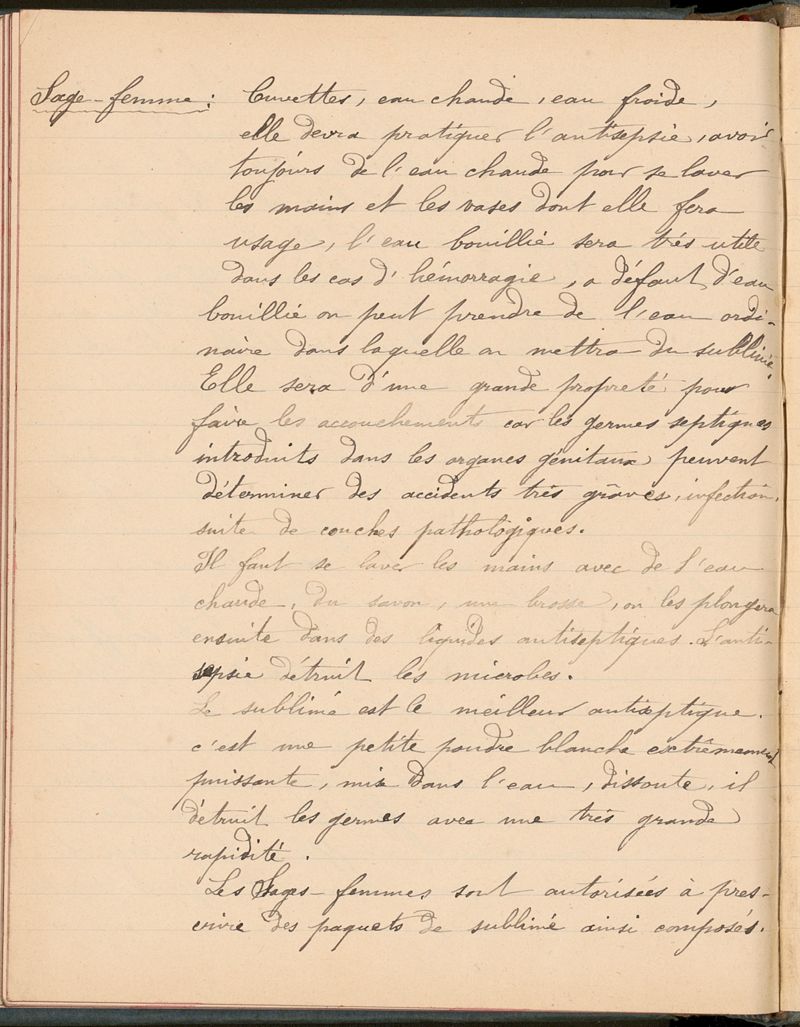 Sage-femme : Cuvettes, eau chaude, eau froide,
elle devra pratiquer l'antisepsie, avoir
toujours de l'eau chaude pour se laver
les mains et les vases dont elle fera
usage, l'eau bouillie sera très utile
dans les cas d'hémorragie, a défaut d'eau
bouillie on peut prendre de l'eau ordi-
naire dans laquelle on mettra du sublimé.
Elle sera d'une grande propreté pour
faire les accouchements car les germes septiques
introduits dans les organes génitaux peuvent
déterminer des accidents très grâves, infection,
suite de couches pathologiques.
Il faut se laver les mains avec de l'eau
chaude, du savon, une brosse, on les plongera
ensuite dans des liquides antiseptiques. L'anti-
sepsie détruit les microbes.
Le sublimé est le meilleur antiseptique.
c'est une petite poudre blanche extrêmement
puissante, mise dans l'eau, dissoute, il
détruit les germes avec une très grande
rapidité.
Les Sages-femmes sont autorisées à pres-
crire des paquets de sublimé ainsi composés.